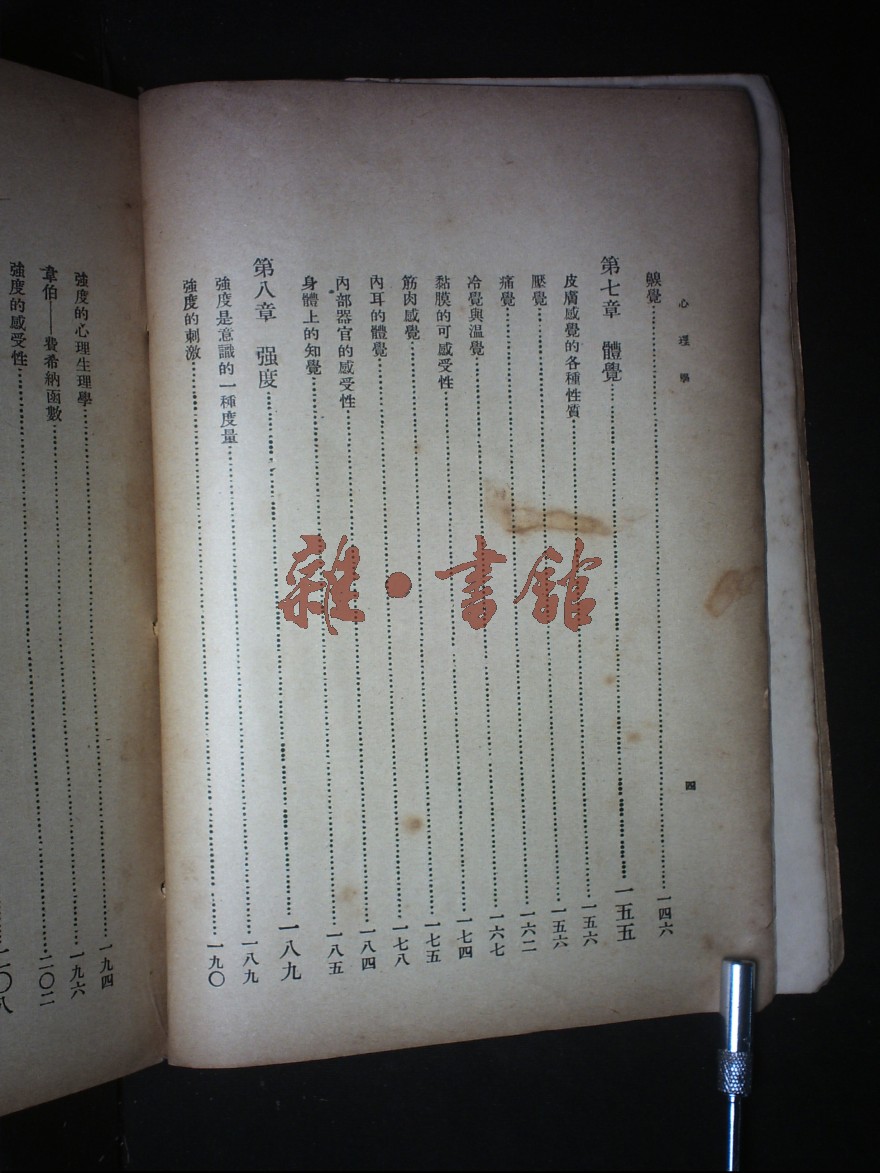 心理學 四
齅覺……一四六
第七章 體覺……一五五
皮膚感覺的各種性質……一五六
壓覺……一五六
痛覺……一六二
冷覺與溫覺……一六七
黏膜的可感受性……一七四
筋肉感覺……一七五
內耳的體覺……一七八
內部器官的感受性……一八四
身體上的知覺……一八五
第八章 强度……一八九
強度是意識的一種度量……一八九
強度的刺激……一九〇
強度的心理生理學……一九四
韋伯——費希納函數……一九六
強度的感受性……二〇二
二〇八
雜·書館